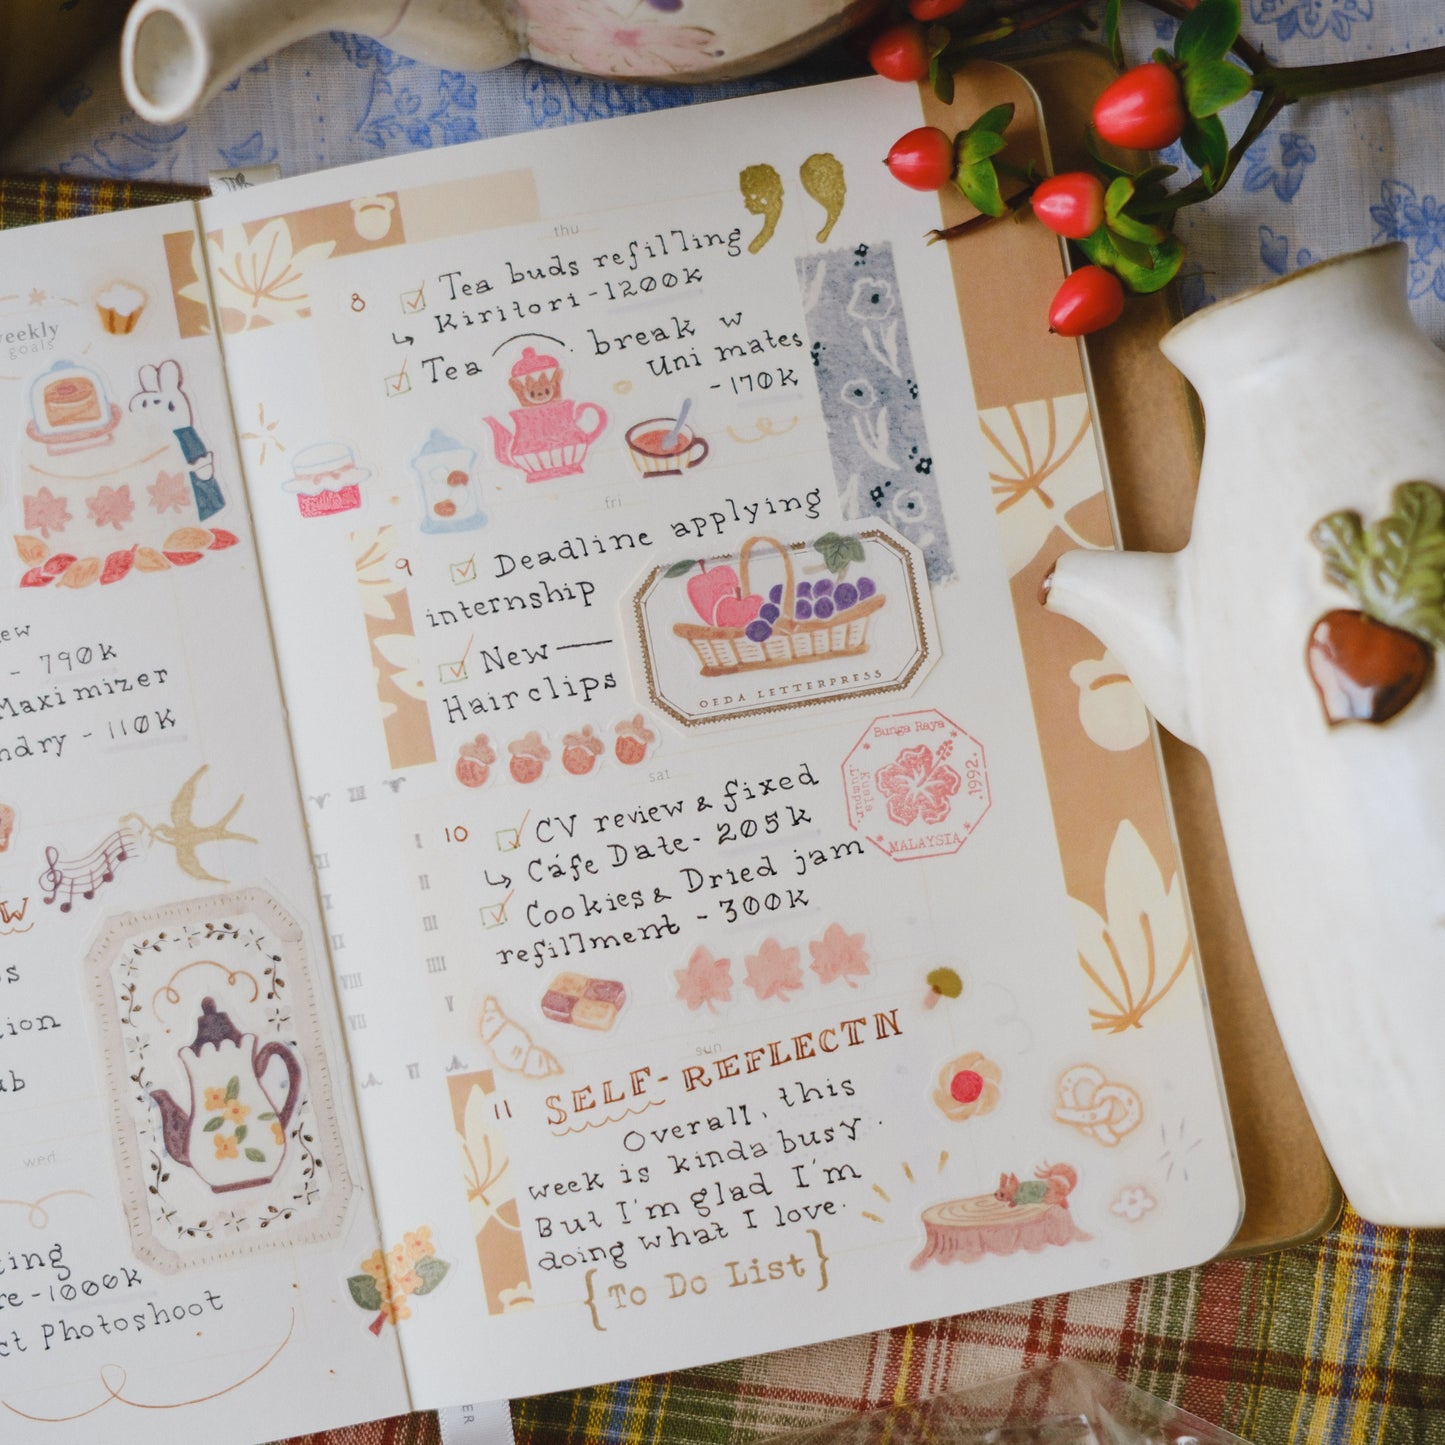 weekly
goals
790K
Maximizer
110K
wed
-1000K
Photoshoot
thu
8
Tea buds refilling
↳ Kiritori - 1200K
Tea break w
Uni mates
- 170K
fri
9
Deadline applying
internship
New —
Hairclips
OEDA LETTERPRESS
sat
10
CV review & fixed
↳ Cáfe Date - 205K
Cookies & Dried jam
refillment - 300K
Bunga Raya
Kuala Lumpur
1992
MALAYSIA
sun
11
SELF-REFLECTN
Overall, this
week is kinda busy.
But I'm glad I'm
doing what I love.
{To Do List}